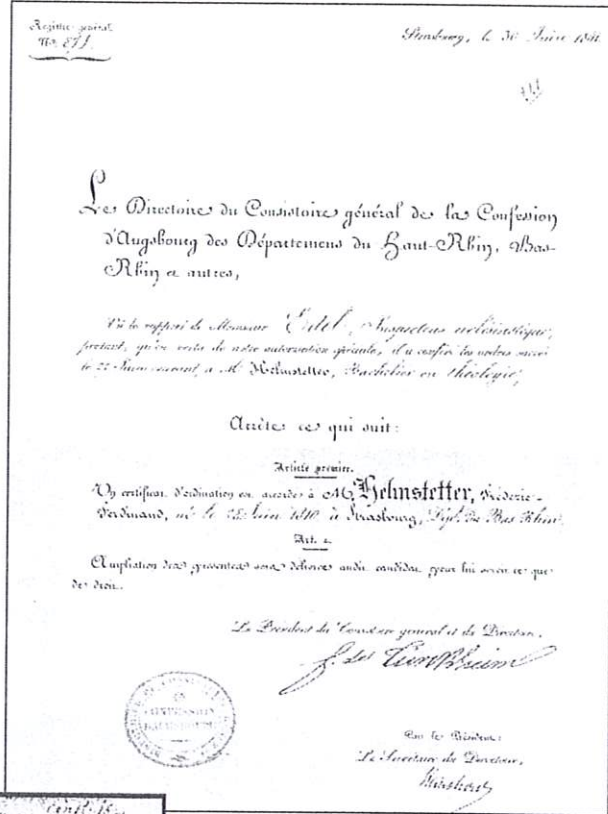 Registre général
No. 871.
Strasbourg, le 30
Le Directoire du Consistoire général de la Confession
d'Augsbourg des Départemens du Haut-Rhin, Bas-
Rhin et autres,
Vu le rapport de Monsieur Edel, Inspecteur ecclésiastique,
portant, qu'en vertu de notre autorisation spéciale, il a conféré les ordres sacrés
le 22 courant, à Mr Helmstetter, Bachelier en théologie,
Arrête ce qui suit:
Article premier.
Un certificat d'ordination est accordé à M. Helmstetter, Frédéric-
Ferdinand, né le Juin à Strasbourg, Dépt. du Bas Rhin.
Art. 2.
Ampliation des présentes sera délivrée audit candidat, pour lui servir ce que
de droit.
Le Président du Consistoire général et du Directoire,
f. de Turckheim
CONFESSION
D'AUGSBOURG
Par le Président:
Le Secrétaire du Directoire,